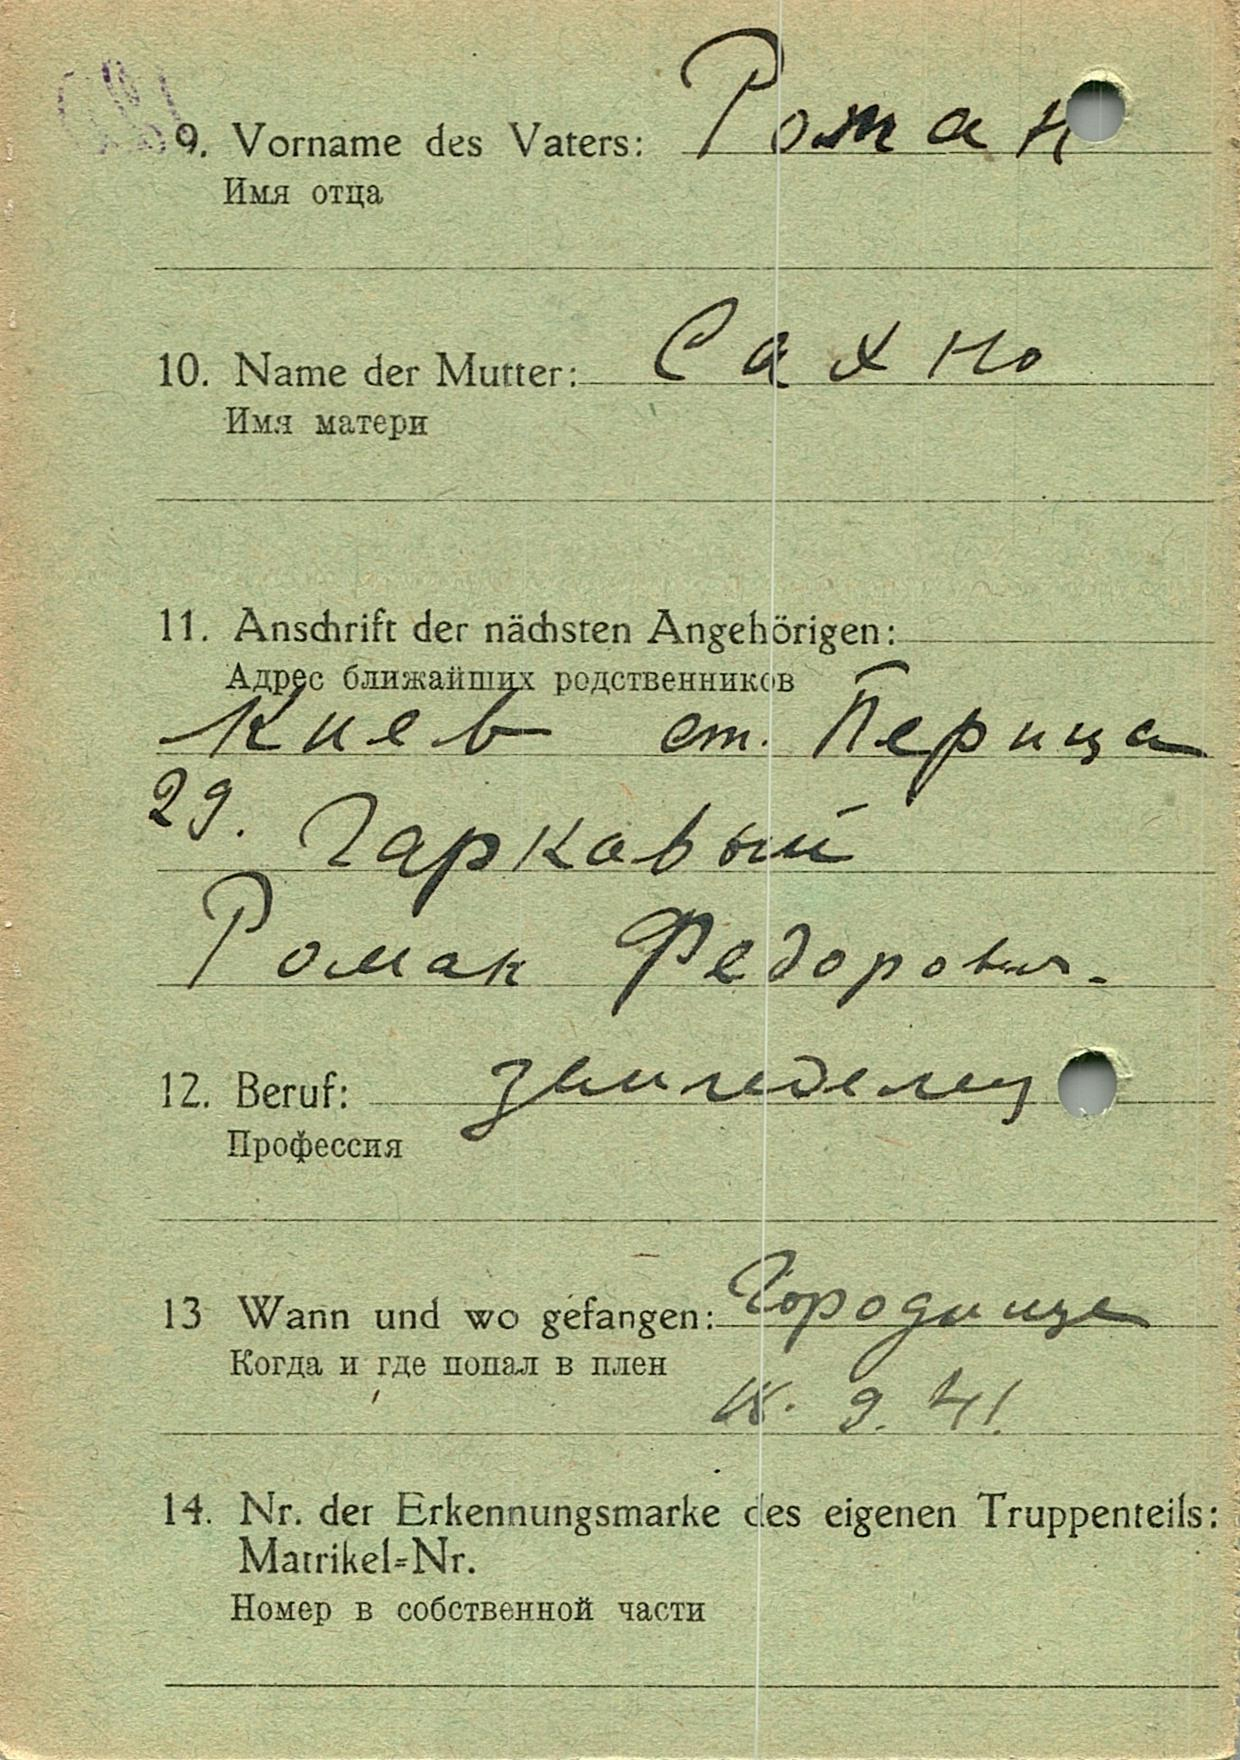 9. Vorname des Vaters: Роман
Имя отца
10. Name der Mutter: Сахно
Имя матери
11. Anschrift der nächsten Angehörigen:
Адрес ближайших родственников
Киев ст. Перица
29. Гаркавый
Роман Федорович.
12. Beruf: земледелец
Профессия
13 Wann und wo gefangen: Городище
Когда и где попал в плен
9. 41.
14. Nr. der Erkennungsmarke des eigenen Truppenteils:
Matrikel=Nr.
Номер в собственной части